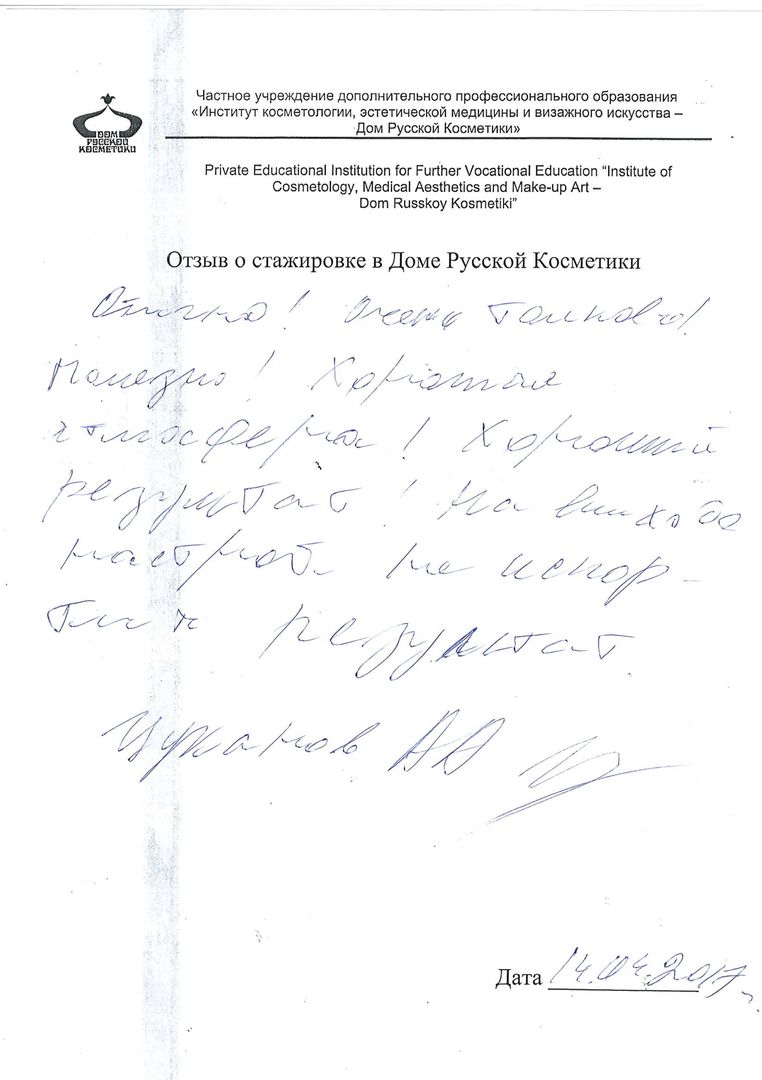 ДОМ
РУССКОЙ
КОСМЕТИКИ
Частное учреждение дополнительного профессионального образования
«Институт косметологии, эстетической медицины и визажного искусства –
Дом Русской Косметики»
Private Educational Institution for Further Vocational Education “Institute of
Cosmetology, Medical Aesthetics and Make-up Art –
Dom Russkoy Kosmetiki”
Отзыв о стажировке в Доме Русской Косметики
Отлично! Очень толково!
Полезно! Хорошая
атмосфера! Хороший
результат! На
настрой не испор-
тил результат.
Цуканов АА
Дата 14.04.2017